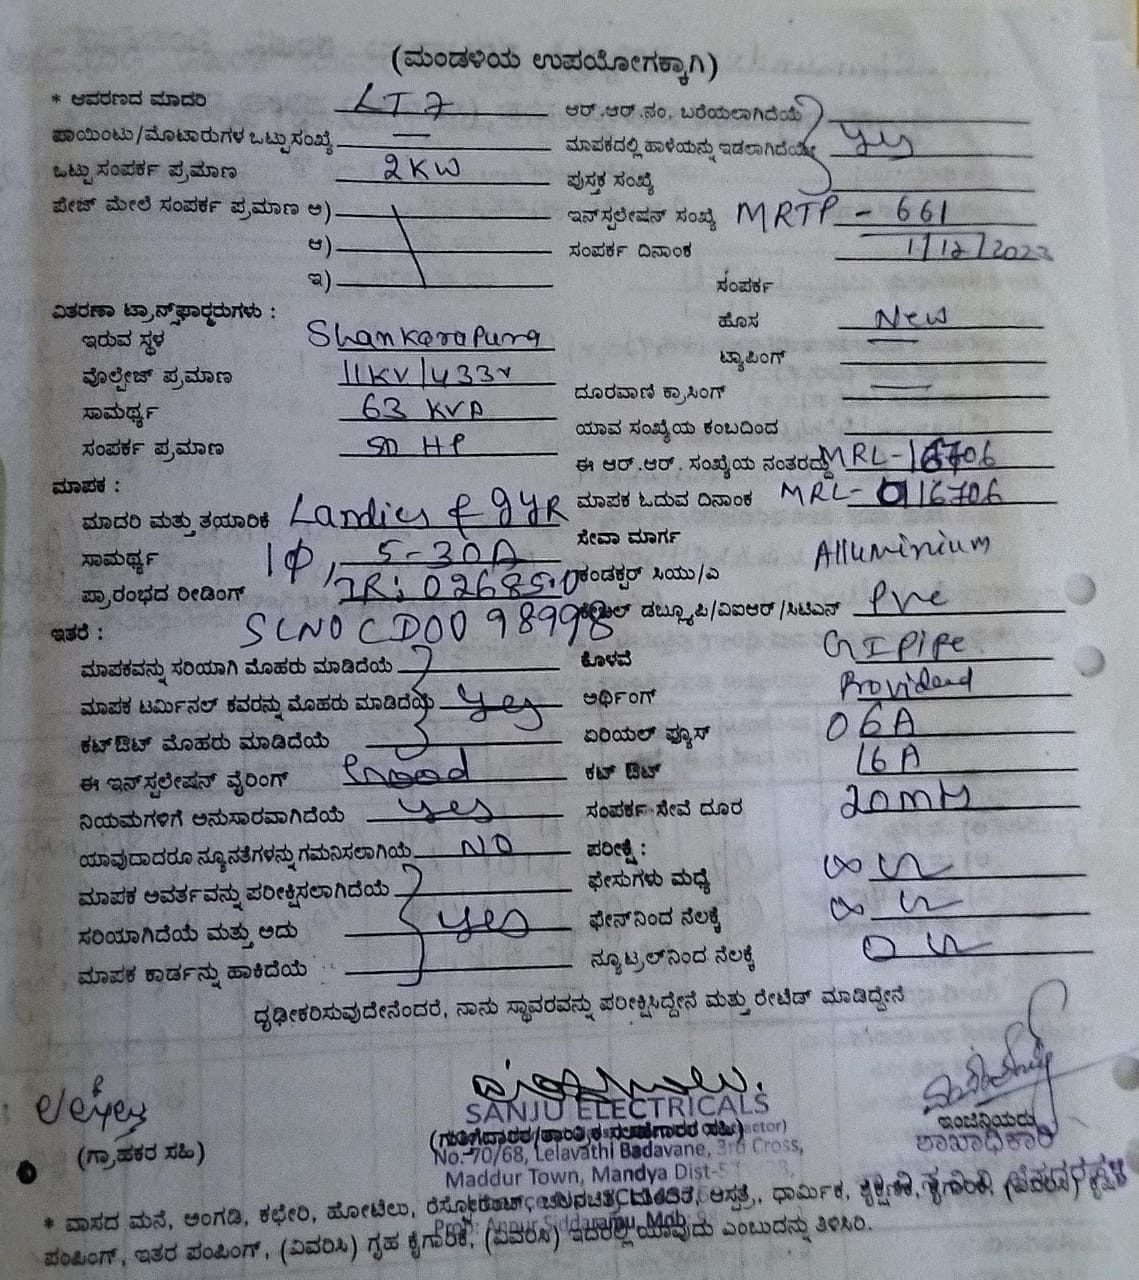 (ಮಂಡಳಿಯ ಉಪಯೋಗಕ್ಕಾಗಿ)
* ಆವರಣದ ಮಾದರಿ LT 7
ಪಾಯಿಂಟು/ಮೋಟಾರುಗಳ ಒಟ್ಟು ಸಂಖ್ಯೆ —
ಒಟ್ಟು ಸಂಪರ್ಕ ಪ್ರಮಾಣ 2KW
ಪೇಜ್ ಮೇಲೆ ಸಂಪರ್ಕ ಪ್ರಮಾಣ ಅ)
ಆ)
ಇ)
ವಿತರಣಾ ಟ್ರಾನ್ಸ್‌ಫಾರ್ಮರುಗಳು :
ಇರುವ ಸ್ಥಳ Shankarapura
ವೊಲ್ಟೇಜ್ ಪ್ರಮಾಣ 11KV/433V
ಸಾಮರ್ಥ್ಯ 63 KVA
ಸಂಪರ್ಕ ಪ್ರಮಾಣ 50 HP
ಮಾಪಕ :
ಮಾದರಿ ಮತ್ತು ತಯಾರಿಕೆ Landies & gyR
ಸಾಮರ್ಥ್ಯ 1Φ, 5-30A
ಪ್ರಾರಂಭದ ರೀಡಿಂಗ್ IR: 02685.0
ಇತರೆ : SLNO CD00 98998
ಮಾಪಕವನ್ನು ಸರಿಯಾಗಿ ಮೊಹರು ಮಾಡಿದೆಯೆ
ಮಾಪಕ ಟರ್ಮಿನಲ್ ಕವರನ್ನು ಮೊಹರು ಮಾಡಿದೆಯೆ yes
ಕಟ್‌ಔಟ್ ಮೊಹರು ಮಾಡಿದೆಯೆ
ಈ ಇನ್‌ಸ್ಟಲೇಷನ್ ವೈರಿಂಗ್ Good
ನಿಯಮಗಳಿಗೆ ಅನುಸಾರವಾಗಿದೆಯೆ yes
ಯಾವುದಾದರೂ ನ್ಯೂನತೆಗಳನ್ನು ಗಮನಿಸಲಾಗಿಯೆ NO
ಮಾಪಕ ಆವರ್ತವನ್ನು ಪರೀಕ್ಷಿಸಲಾಗಿದೆಯೆ
ಸರಿಯಾಗಿದೆಯೆ ಮತ್ತು ಅದು yes
ಮಾಪಕ ಕಾರ್ಡನ್ನು ಹಾಕಿದೆಯೆ
ಆರ್.ಆರ್.ನಂ, ಬರೆಯಲಾಗಿದೆಯೆ
ಮಾಪಕದಲ್ಲಿ ಹಾಳೆಯನ್ನು ಇಡಲಾಗಿದೆಯೇ yes
ಪುಸ್ತಕ ಸಂಖ್ಯೆ
ಇನ್‌ಸ್ಟಲೇಷನ್ ಸಂಖ್ಯೆ MRTP - 661
ಸಂಪರ್ಕ ದಿನಾಂಕ 1/12/2023
ಸಂಪರ್ಕ
ಹೊಸ New
ಟ್ಯಾಪಿಂಗ್ —
ದೂರವಾಣಿ ಕ್ರಾಸಿಂಗ್ —
ಯಾವ ಸಂಖ್ಯೆಯ ಕಂಬದಿಂದ
ಈ ಆರ್.ಆರ್. ಸಂಖ್ಯೆಯ ನಂತರದ್ದು MRL-16706
ಮಾಪಕ ಓದುವ ದಿನಾಂಕ MRL-16706
ಸೇವಾ ಮಾರ್ಗ
ಕಂಡಕ್ಟರ್ ಸಿಯು/ಎ Alluminium
ಕೇಬಲ್ ಡಬ್ಲ್ಯೂಪಿ/ವಿಐಆರ್/ಸಿಟಿಎನ್ Pvc
ಕೊಳವೆ GI Pipe
ಅರ್ಥಿಂಗ್ Provided
ಏರಿಯಲ್ ಫ್ಯೂಸ್ 06A
ಕಟ್ ಔಟ್ 16A
ಸಂಪರ್ಕ ಸೇವೆ ದೂರ 20mts
ಪರೀಕ್ಷೆ :
ಫೇಸುಗಳು ಮಧ್ಯೆ ∞
ಫೇಸ್‌ನಿಂದ ನೆಲಕ್ಕೆ ∞
ನ್ಯೂಟ್ರಲ್‌ನಿಂದ ನೆಲಕ್ಕೆ 0
ದೃಢೀಕರಿಸುವುದೇನೆಂದರೆ, ನಾನು ಸ್ಥಾವರವನ್ನು ಪರೀಕ್ಷಿಸಿದ್ದೇನೆ ಮತ್ತು ರೇಟೆಡ್ ಮಾಡಿದ್ದೇನೆ
(ಗ್ರಾಹಕರ ಸಹಿ)
SANJU ELECTRICALS
No.-70/68, Lelavathi Badavane, 3rd Cross,
Maddur Town, Mandya Dist-5
ಇಂಜಿನಿಯರು
ಶಾಖಾಧಿಕಾರಿ
* ವಾಸದ ಮನೆ, ಅಂಗಡಿ, ಕಛೇರಿ, ಹೋಟೆಲು, ಆಸ್ಪತ್ರೆ, ಧಾರ್ಮಿಕ, ಶೈಕ್ಷಣಿಕ, ಕೈಗಾರಿಕೆ, (ವಿವರಿಸಿ)
ಪಂಪಿಂಗ್, ಇತರ ಪಂಪಿಂಗ್, (ವಿವರಿಸಿ) ಗೃಹ ಕೈಗಾರಿಕೆ, (ವಿವರಿಸಿ) ಇದರಲ್ಲಿ ಯಾವುದು ಎಂಬುದನ್ನು ತಿಳಿಸಿರಿ.